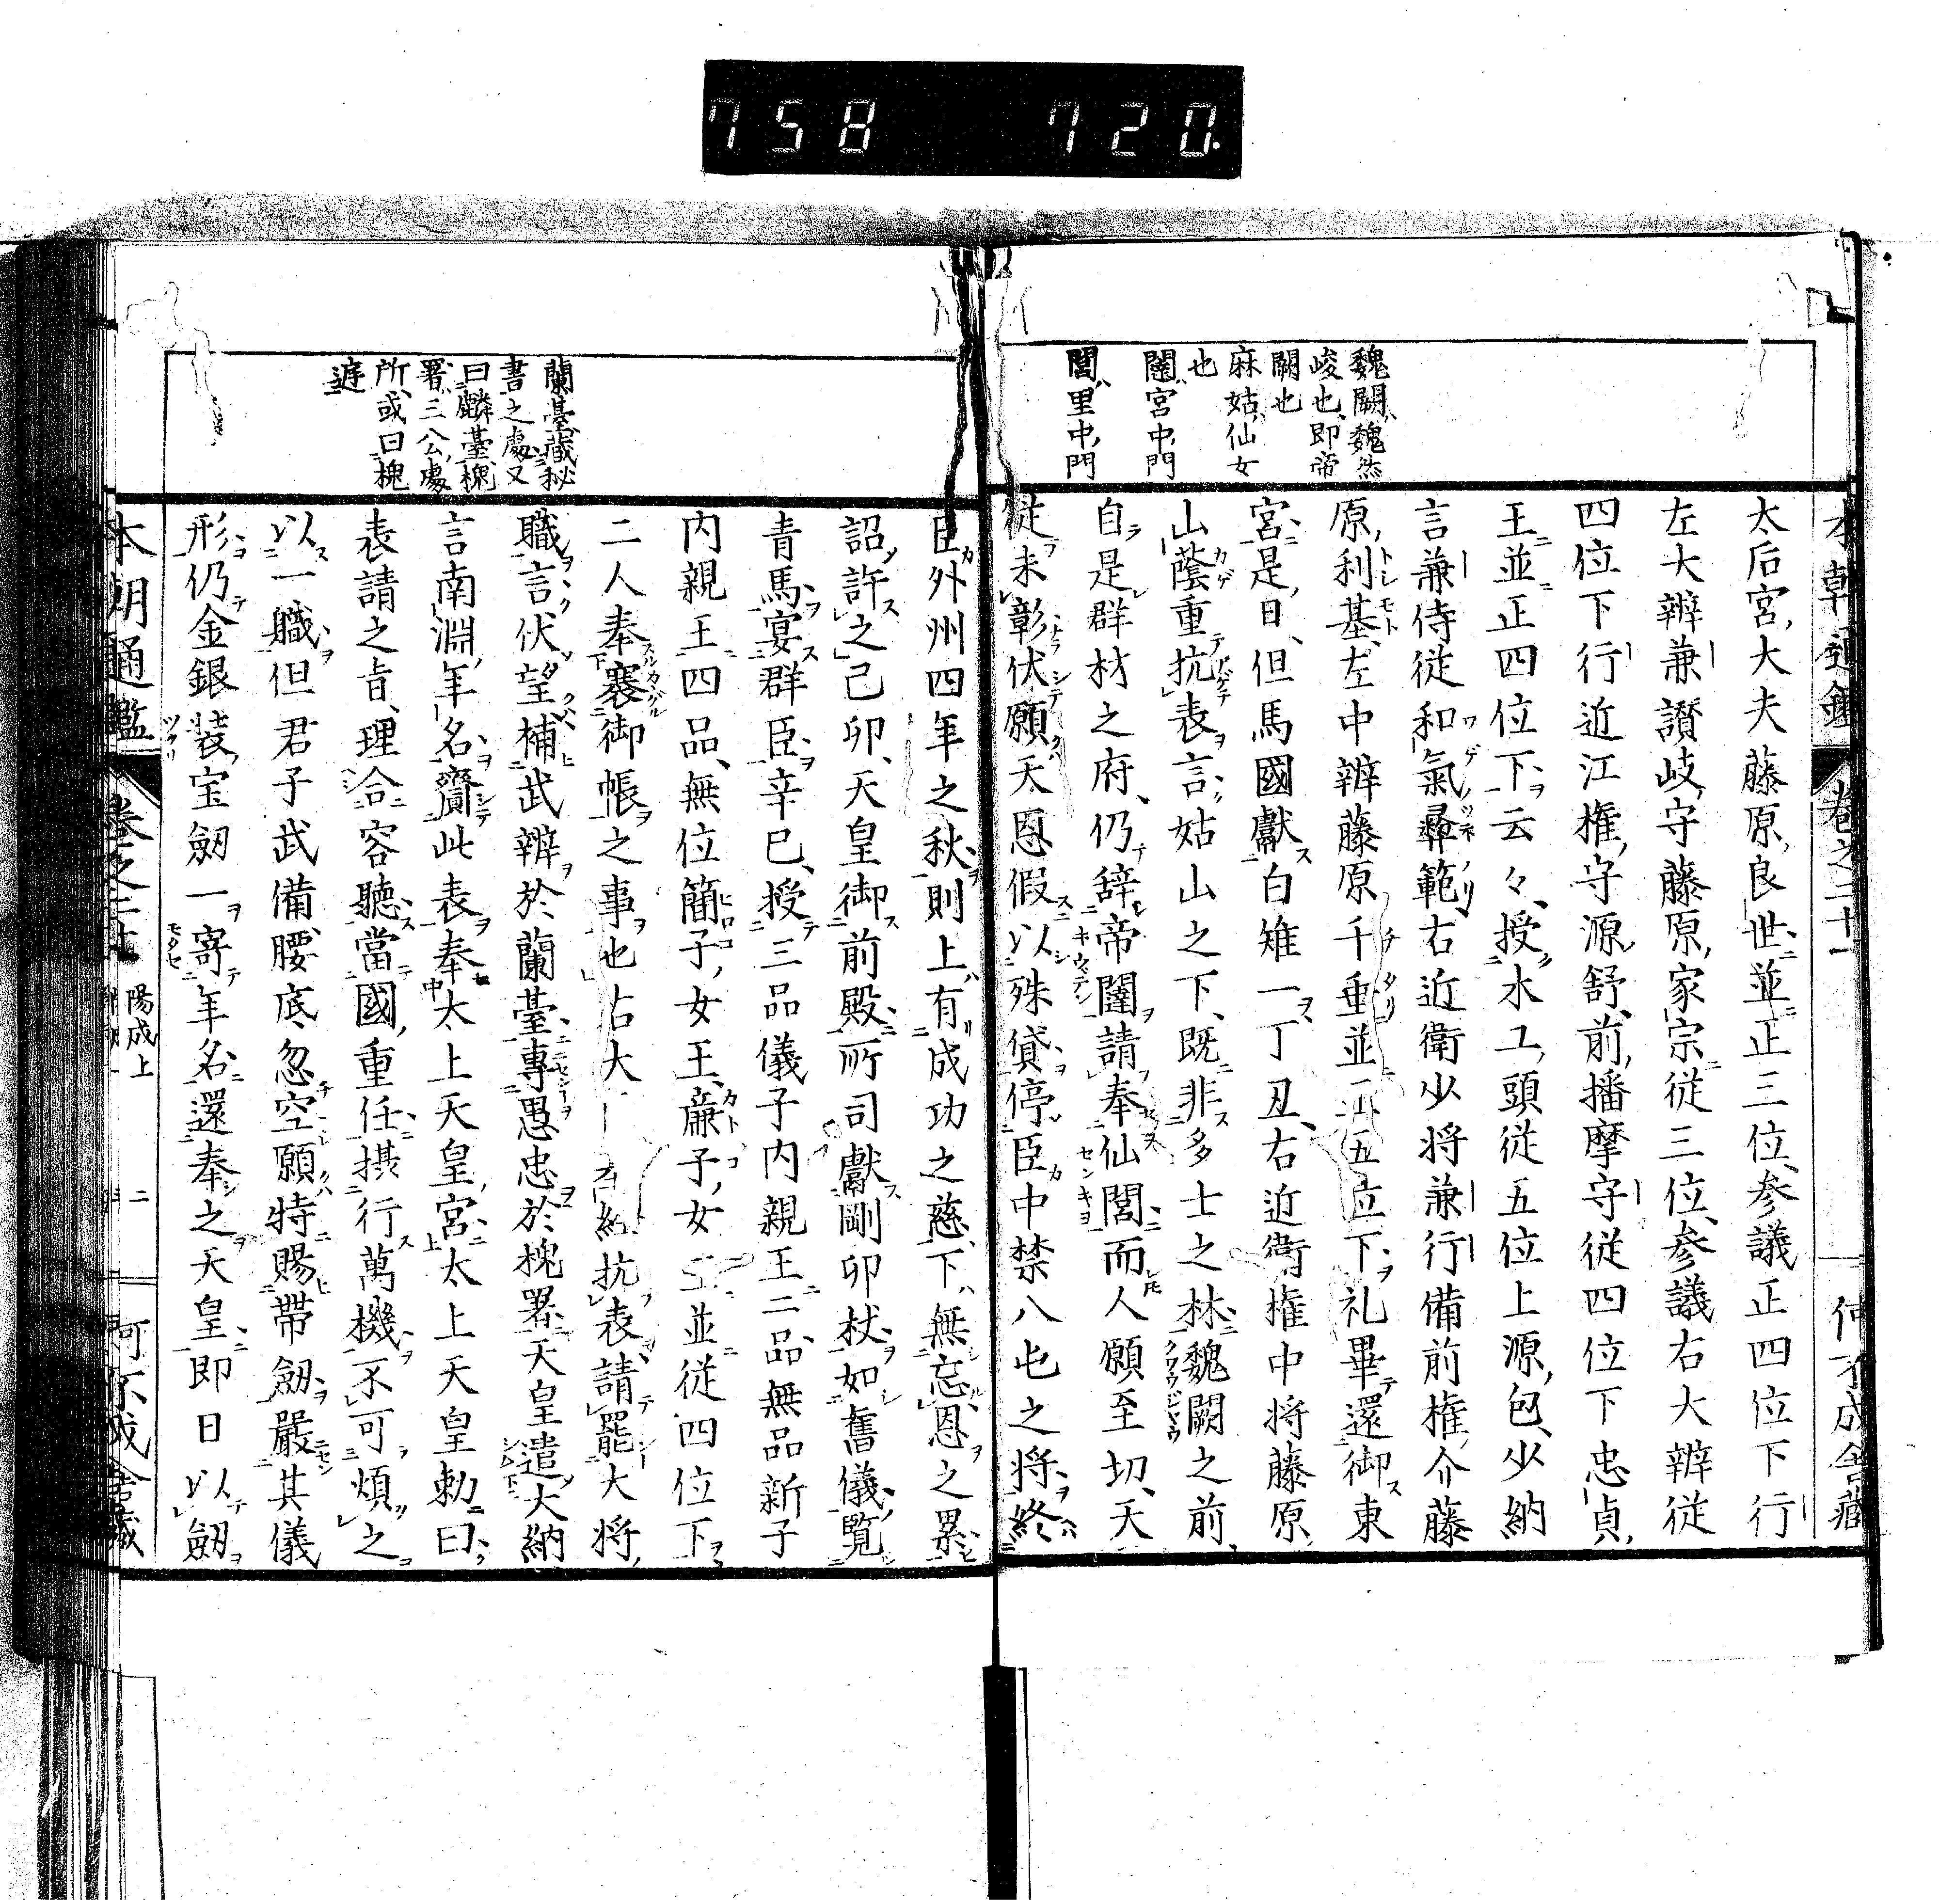 758 720.
本朝通鑑 巻之二十一
何不成舎蔵
魏闕、魏然
峻也、即帝
闕也
麻姑、仙女
也
闥、宮中門
閭、里中門
太后宮大夫藤原良世並正三位、参議正四位下行
左大辨兼讃岐守藤原家宗従三位、参議右大辨従
四位下行近江権守源舒、前播摩守従四位下忠貞
王並正四位下云々、授水工頭従五位上源包、少納
言兼侍従和氣彜範、右近衛少将兼行備前権介藤
原利基、左中辨藤原千乗並
下礼畢還御東
宮是日、但馬國獻白雉一丁丑、右近衛権中将藤原
山蔭重抗表言姑山之下、既非多士之林魏闕之前
自是群材之府、仍辞帝闥請奉仙閭而人願至切、天
従未彰伏願天恩假以殊貸停臣中禁八屯之将終
蘭臺、藏秘
書之處、又
曰麟臺、槐
署、三公處
所、或曰槐
庭
臣外州四年之秋則上有成功之慈下無忘恩之累
詔許之己卯、天皇御前殿所司獻剛卯杖如舊儀覧
青馬宴群臣辛巳、授三品儀子内親王二品、無品新子
内親王四品、無位簡子女王、廉子女王並従四位下
二人奉褰御帳之事也右大
抗表請罷大将
職言伏望補武辨於蘭臺專愚忠於槐署天皇遣大納
言南淵年名齎此表奉太上天皇宮太上天皇勅曰
表請之旨、理合容聽當國重任摂行萬機不可煩之
以一職但君子武備、腰底忽空願特賜帯劔嚴其儀
形仍金銀装宝劔一寄年名還奉之天皇即日以劔
本朝通鑑 巻之二十一 陽成上 二 何不成舎蔵